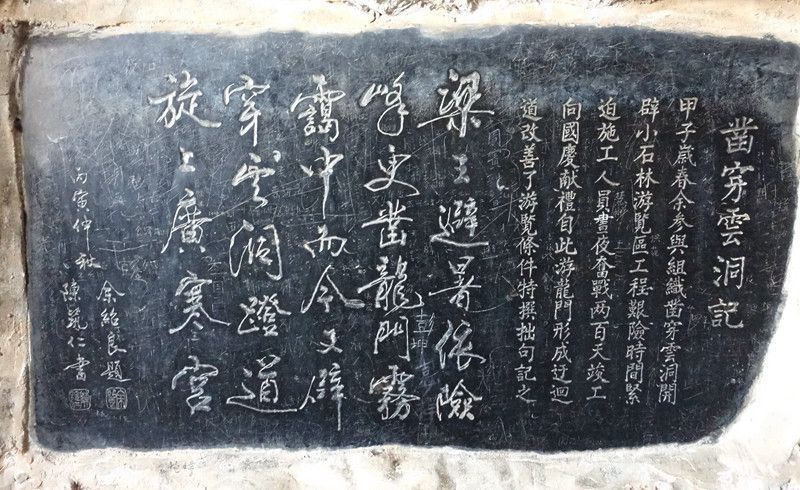 凿穿雲洞記
甲子歲春余參與組織凿穿雲洞開
辟小石林游覽區工程艱險時間緊
迫施工人員晝夜奮戰两百天竣工
向國慶献禮自此游龍門形成迂迴
道改善了游覽條件特撰拙句記之
梁王避暑依險
峰更凿龍門霧
靄中而今又辟
穿雲洞蹬道
旋上廣寒宮
丙寅仲秋
余紹良題
陳筑仁書
彭坤